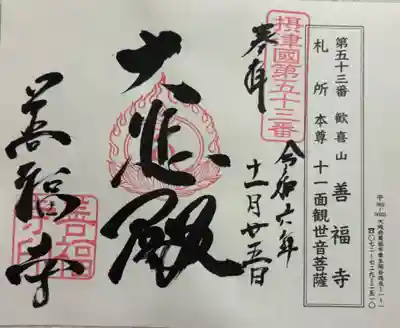 第五十三番 歓喜山 善福寺
札所本尊 十一面観世音菩薩
摂津國第五十三番
奉拝
令和六年
十一月廿五日
大悲殿
善福寺
善福
寺印